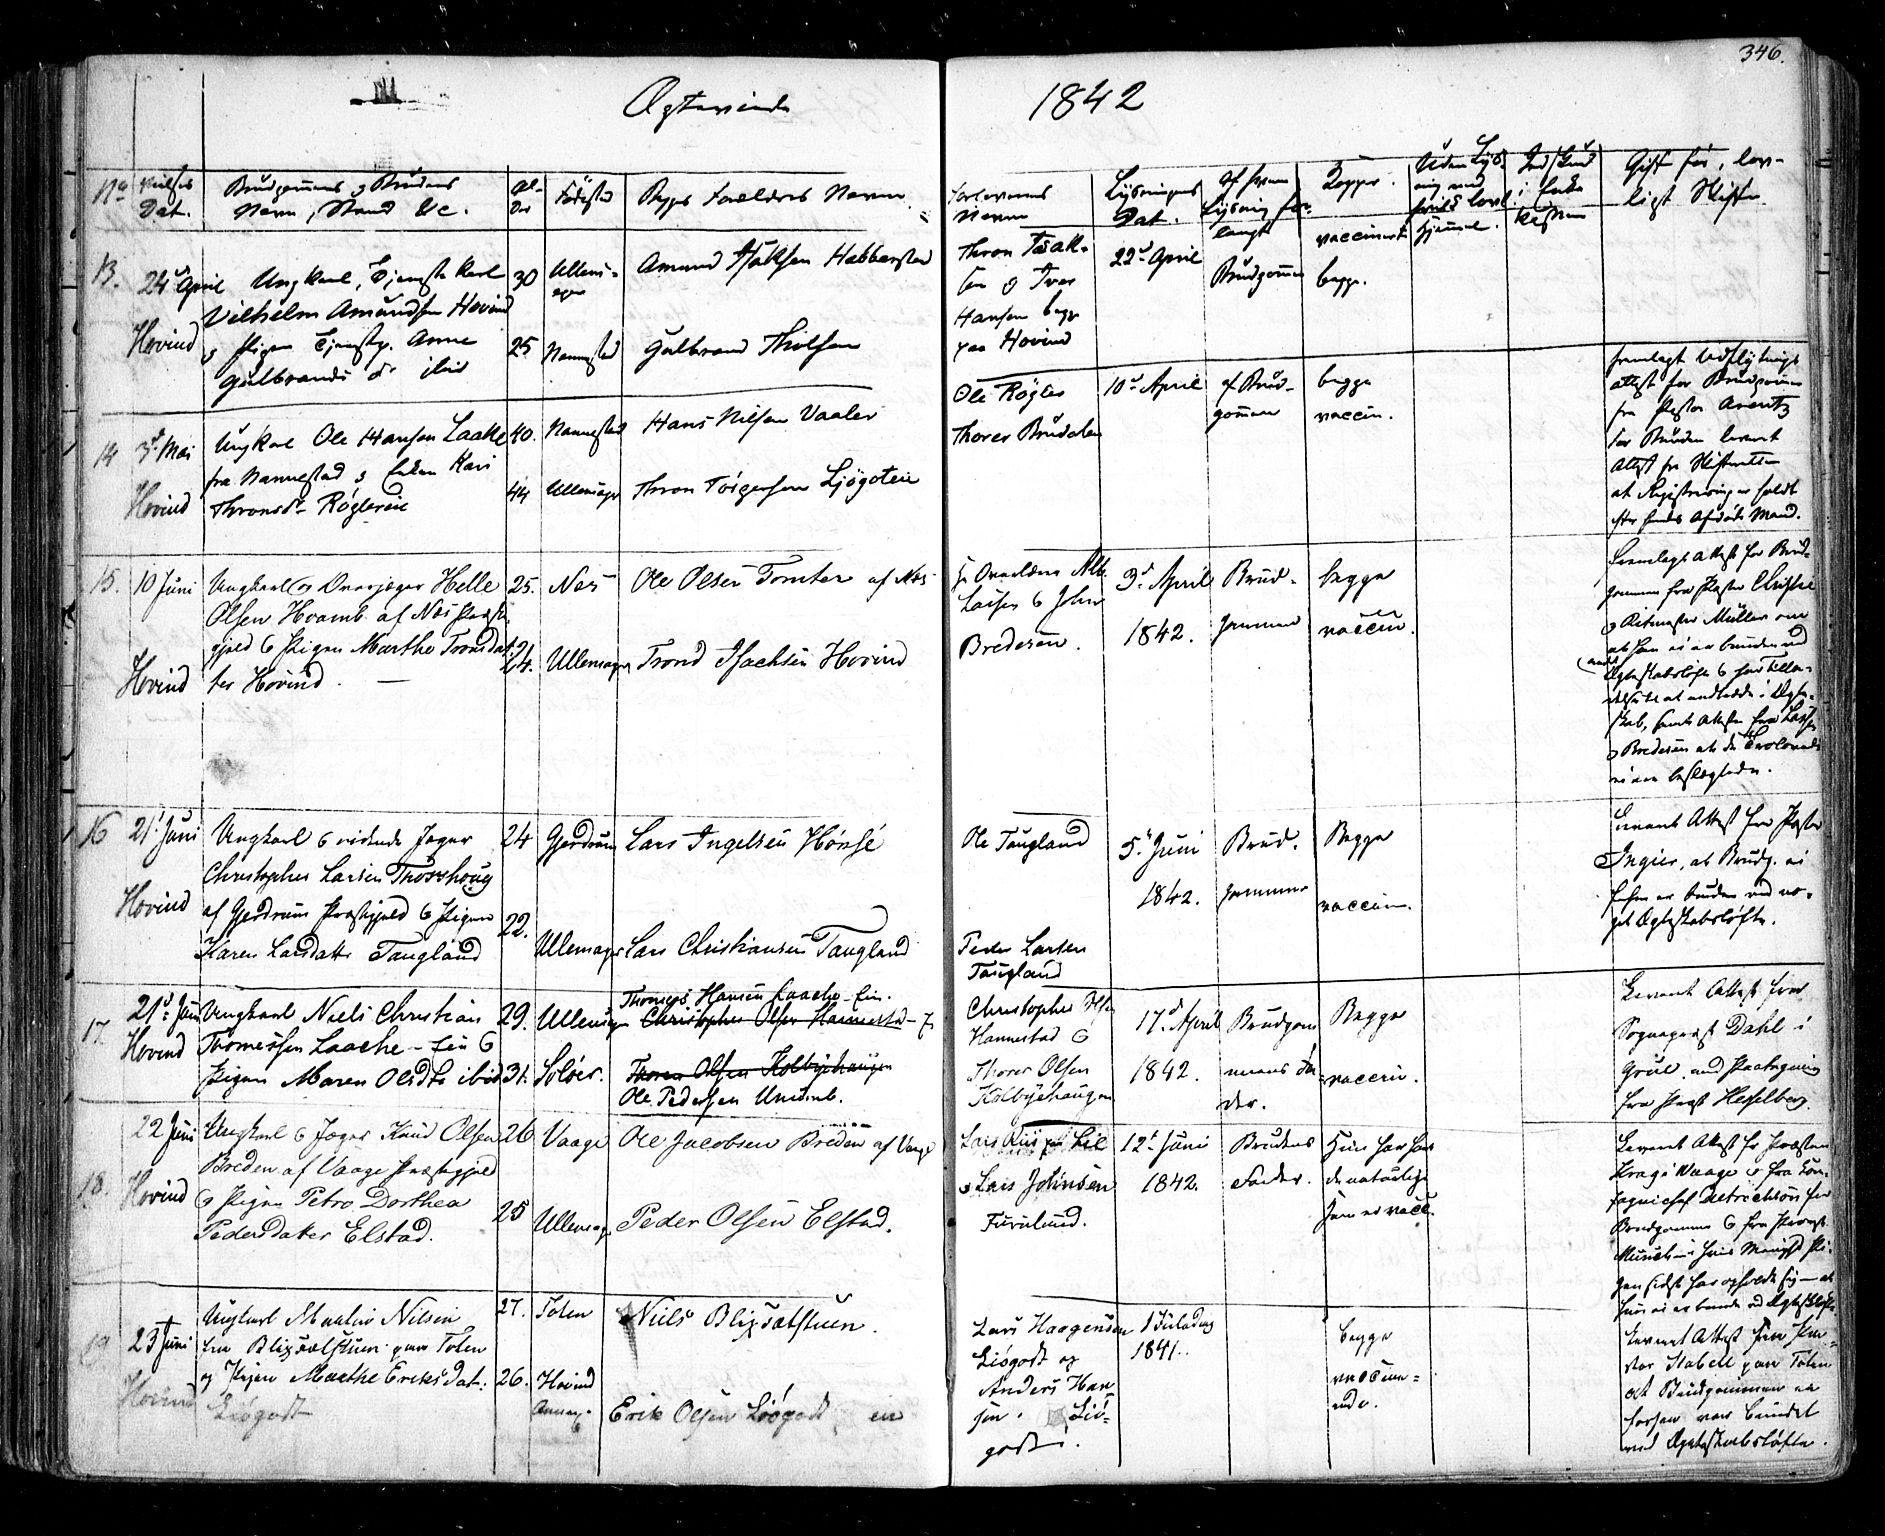 346.
Ægteviede 1842
No Vielses Dat.
Brudgommens og Brudens Navn, Stand &c.
Al- der
Födested
Begges Forældres Navne
Forlovernes Navne
Lysningens Dat.
Af hvem Lysning for- langt
Begge vaccinerte
Uden Lys- ning med
Gift för, lov- ligt Skifte
13.
24d April
Hovind
Ungkarl, Tjenestekarl
Vilhelm Amundsen Hovind
og Pigen Tjenestp. Anne
Gulbrandsdr ibid
30
25
Ullens- ager
Nannestad
Amund Isaksen Habberstad
Gulbrand Tholfsen
Thron Isak-
sen og Iver
Hansen begge
paa Hovind
22d April
Brudgommen
begge.
14
3d Mai
Hovind
Ungkarl Ole Hansen Laake
fra Nannestad og Enken Kari
Thronsdr Röglereie
40.
44
Nannestad
Ullensager
Hans Nilsen Vaaler
Thron Torgersen Ljögoteie
Ole Rögler
Thorer Brudalen
10d April
af Brud-
gommen
begge
vaccin.
fremlagt Udflytnings
attest for Brudgommen
fra Pastor Arentz
for Bruden leveret
Attest fra Skifteretten
at Registrering er holdt
efter hendes Afdöde Mand.
15.
10 Juni
Hovind
Ungkarl og Overjæger Helle
Olsen Hvamb af Næs Præste
gjeld & Pigen Marthe Tronsdat-
ter Hovind. —
25.
24.
Næs
Ullensager
Ole Olsen Tomter af Næs
Trond Isachsen Hovind
Alb.
Laisen & John
Bredesen.
3d April
1842.
Brud-
gommen
begge
vaccin.
Fremlagt Attest for Brud-
gommen fra Pastor
og Ritmester Müller om
at han ei er bunden ved
Ægteskabslöfte & har Tilla-
delse til at indtræde i Ægte-
skab, samt Attest fra
og Bredesen at de Trolovede
ei ere beslægtede.
16
21 Juni
Hovind
Ungkarl & ridende Jæger
Christopher Larsen Throshoug
af Gjerdrum Præstegjeld & Pigen
Karen Larsdatter Taugland
24
22.
Gjerdrum
Ullensager
Lars Ingelsen Hönse
Lars Christiansen Taugland
Ole Taugland
Peder Larsen
Taugland
5. Juni
1842.
Brud-
gommen
Begge
vaccin.
Leveret Attest fra Pastor
Ingier, at Brudg. ei
hesen er bunden ved no-
get Ægteskabslöfte.
17.
21d Juni
Hovind
Ungkarl Niels Christian
Thomessen Laache-Eie &
Pigen Maren Olsdtr ibid
29.
31.
Ullensager
Solöer.
Thomes Hansen Laache-Eie.
Christopher Olsen Hannestad-E
Thorer Olsen Kolbyehaugen
Ole Pedersen
Christopher Olsen
Hannestad &
Thorer Olsen
Kolbyehaugen
17d April
1842.
Brudgom-
mens Fa-
der.
Begge
vaccin.
Leveret Attest fra
Sogneprest Dahl i
Grue, med Paategning
fra Prost Hesselberg.
18.
22 Juni
Hovind
Ungkarl & Jæger Knud Olsen
Breden af Vaage Præstegjeld
og Pigen Petro Dorthea
Pedersdatter Elstad.
26
25
Vaage
Ullensager
Ole Jacobsen Breden af Vaage
Peder Olsen Elstad.
Lars Riis
og Lars Johnsen
Furulund.
12t Juni
1842.
Brudens
Fader.
Hun har havt
de naturlige
han er vacc.
Leveret Attest fra Præsten
Krag i Vaage & fra
for
Brudgommen & fra Provst
Münch i hvis Menighed Pi-
gen sidst har opholdt sig — at
hun ei er bunden ved Ægteskabslöfte
19
23 Juni
Hovind
Ungkarl Martin Nilsen
fra Blixsætstuen paa Toten
og Pigen Marthe Eriksdat:
Liögodt
27.
26.
Toten
Hovind
Annex
Niels Blixsætstuen.
Erik Olsen Liögodt eie
Lars Haagensen
Liögodt og
Anders Han
sen Liö-
godt.
1 Juledag
1841.
begge
vaccine-
rede.
Leveret Attest fra Pa-
stor Kabell paa Toten
at Brudgommen ei
forhen var bundet
ved Ægteskabslöfte.